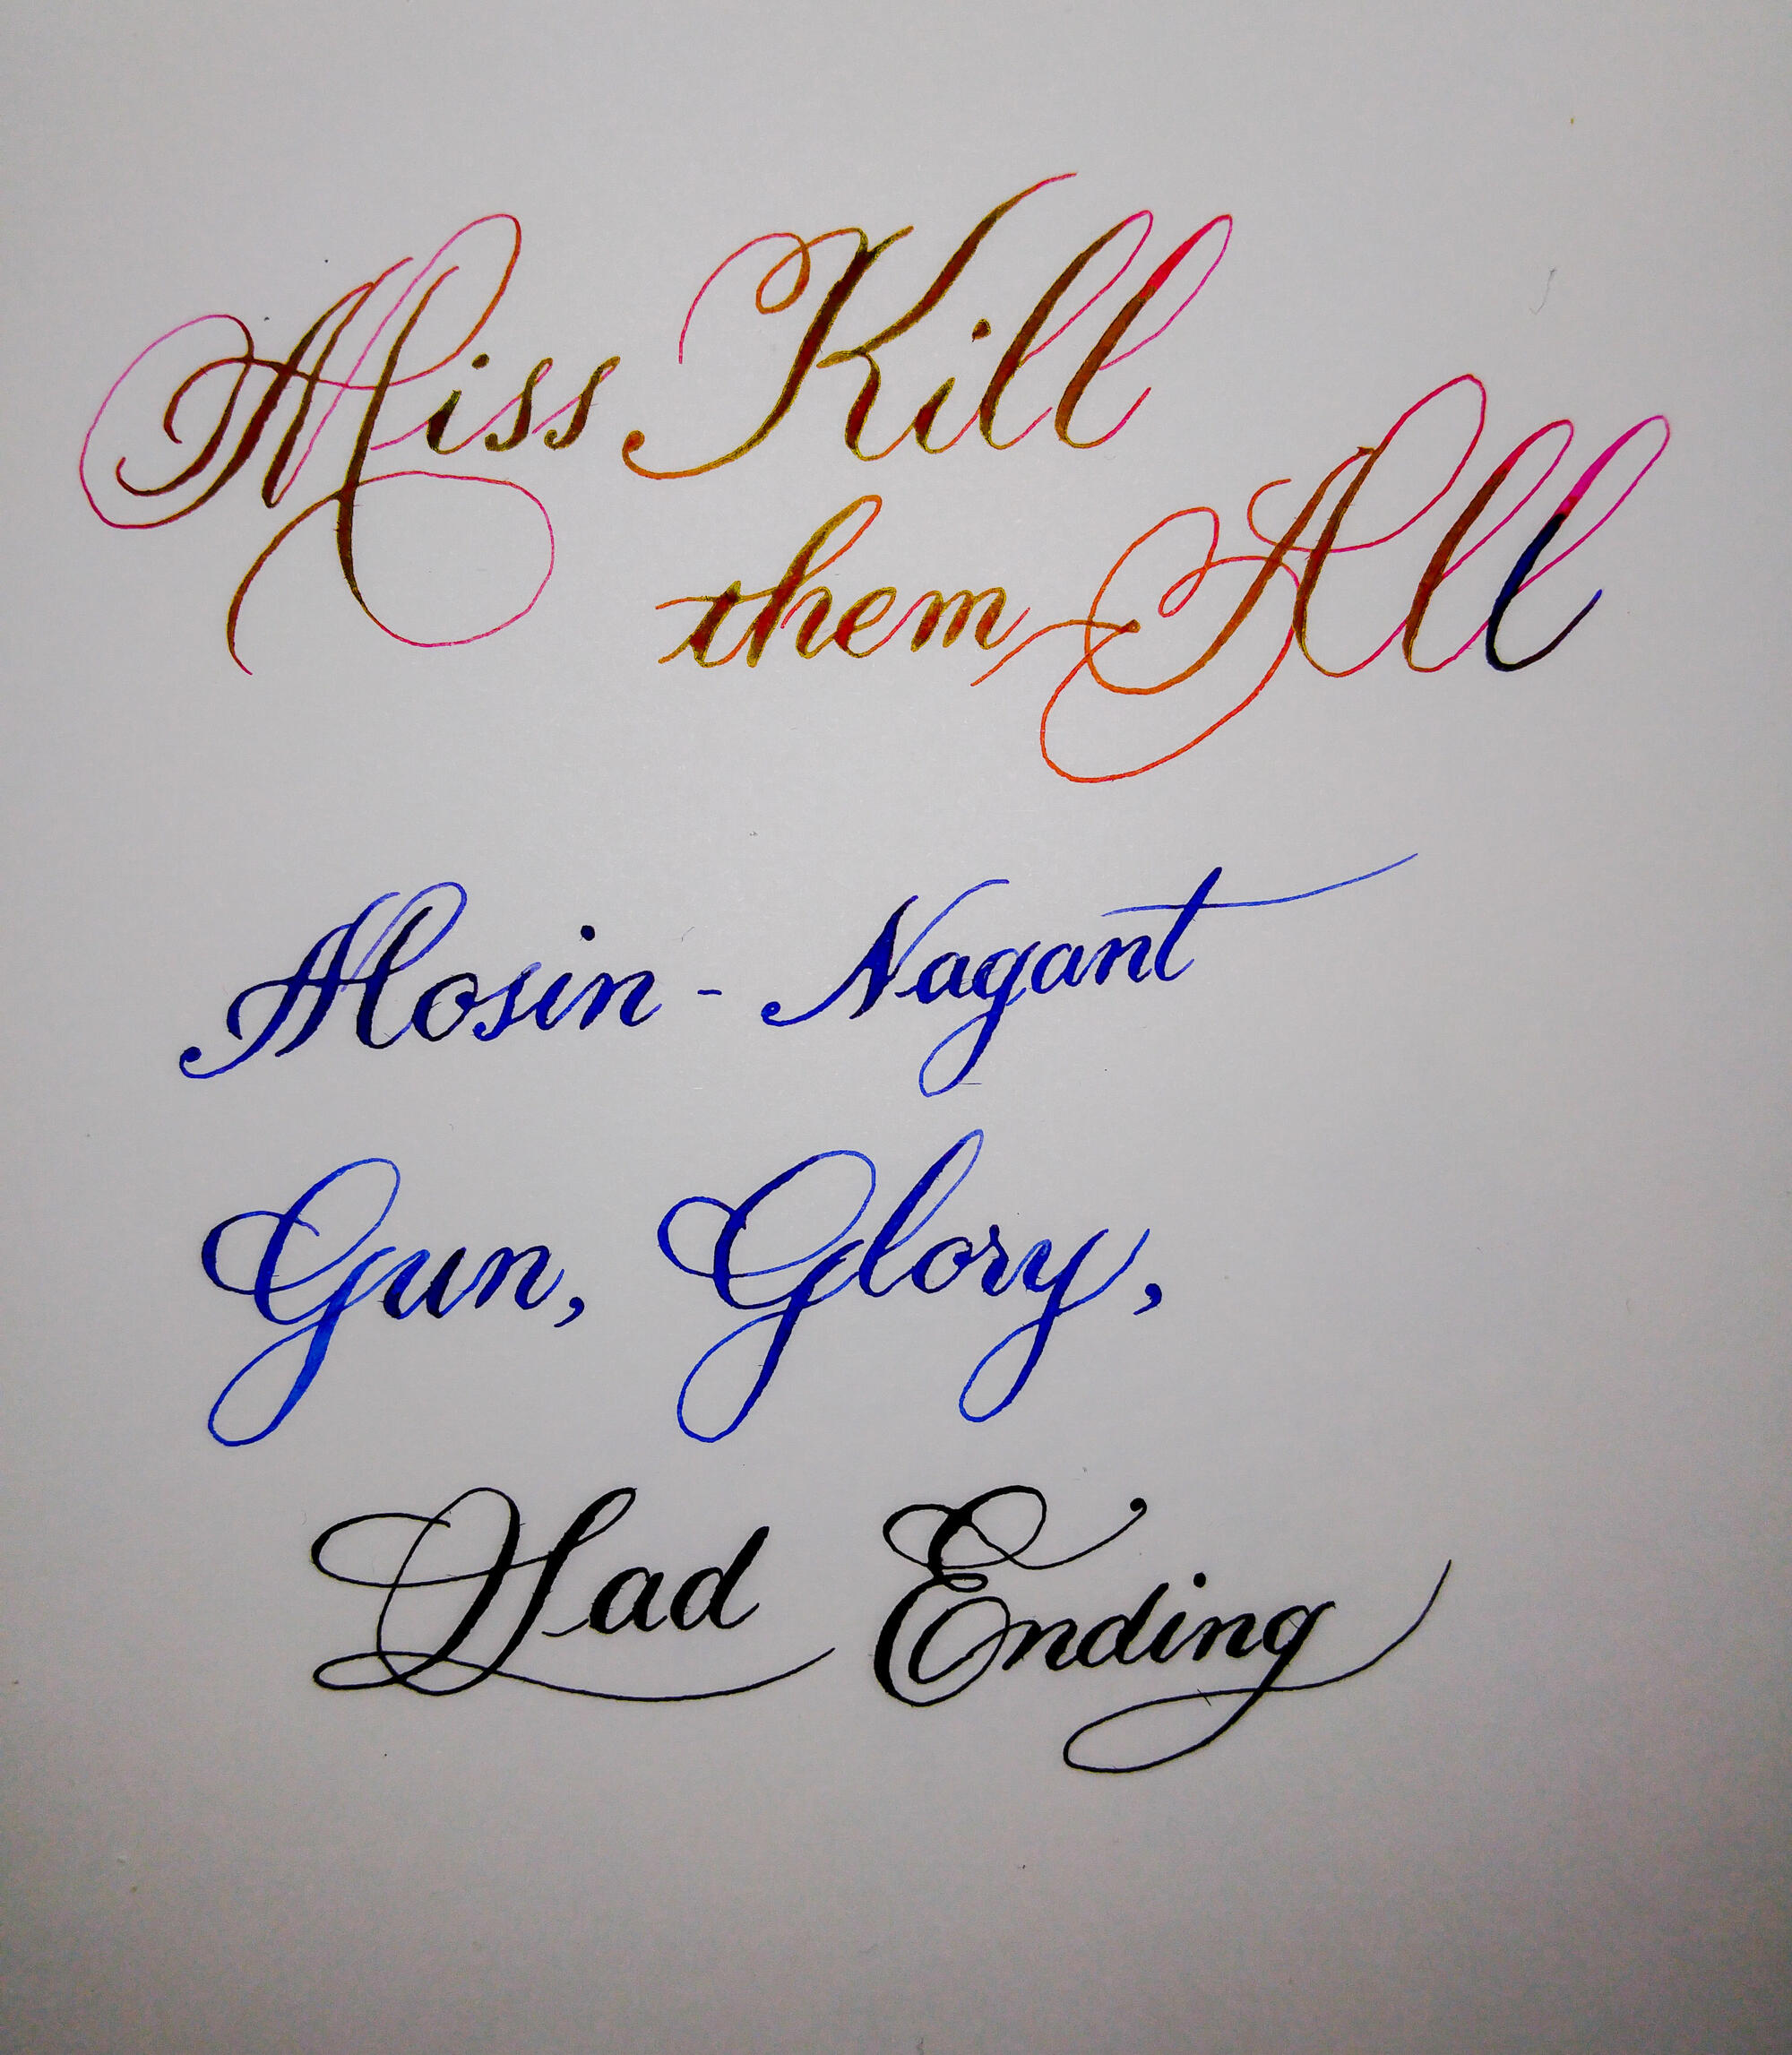 Miss Kill
them All
Mosin - Nagant
Gun, Glory,
Had Ending